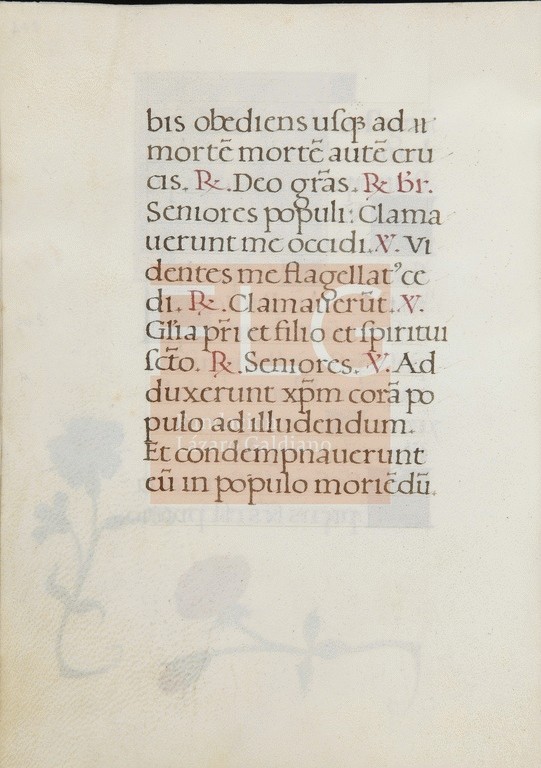 bis obediens usqꝫ ad
mortē mortē autē cru
cis. ℟. Deo grãs. ℟ b̃r.
Seniores populi: Clama
uerunt me occidi. ℣. Vi
dentes me flagellatꝰ ce
di. ℟. Clamauerũt. ℣.
Gl̃ia pr̃i et filio et spiritui
sc̃to. ℟. Seniores. ℣. Ad
duxerunt xp̃m corã po
pulo ad illudendum.
Et condempnauerunt
eũ in populo moriẽdũ.
FLG
Lázaro Galdiano